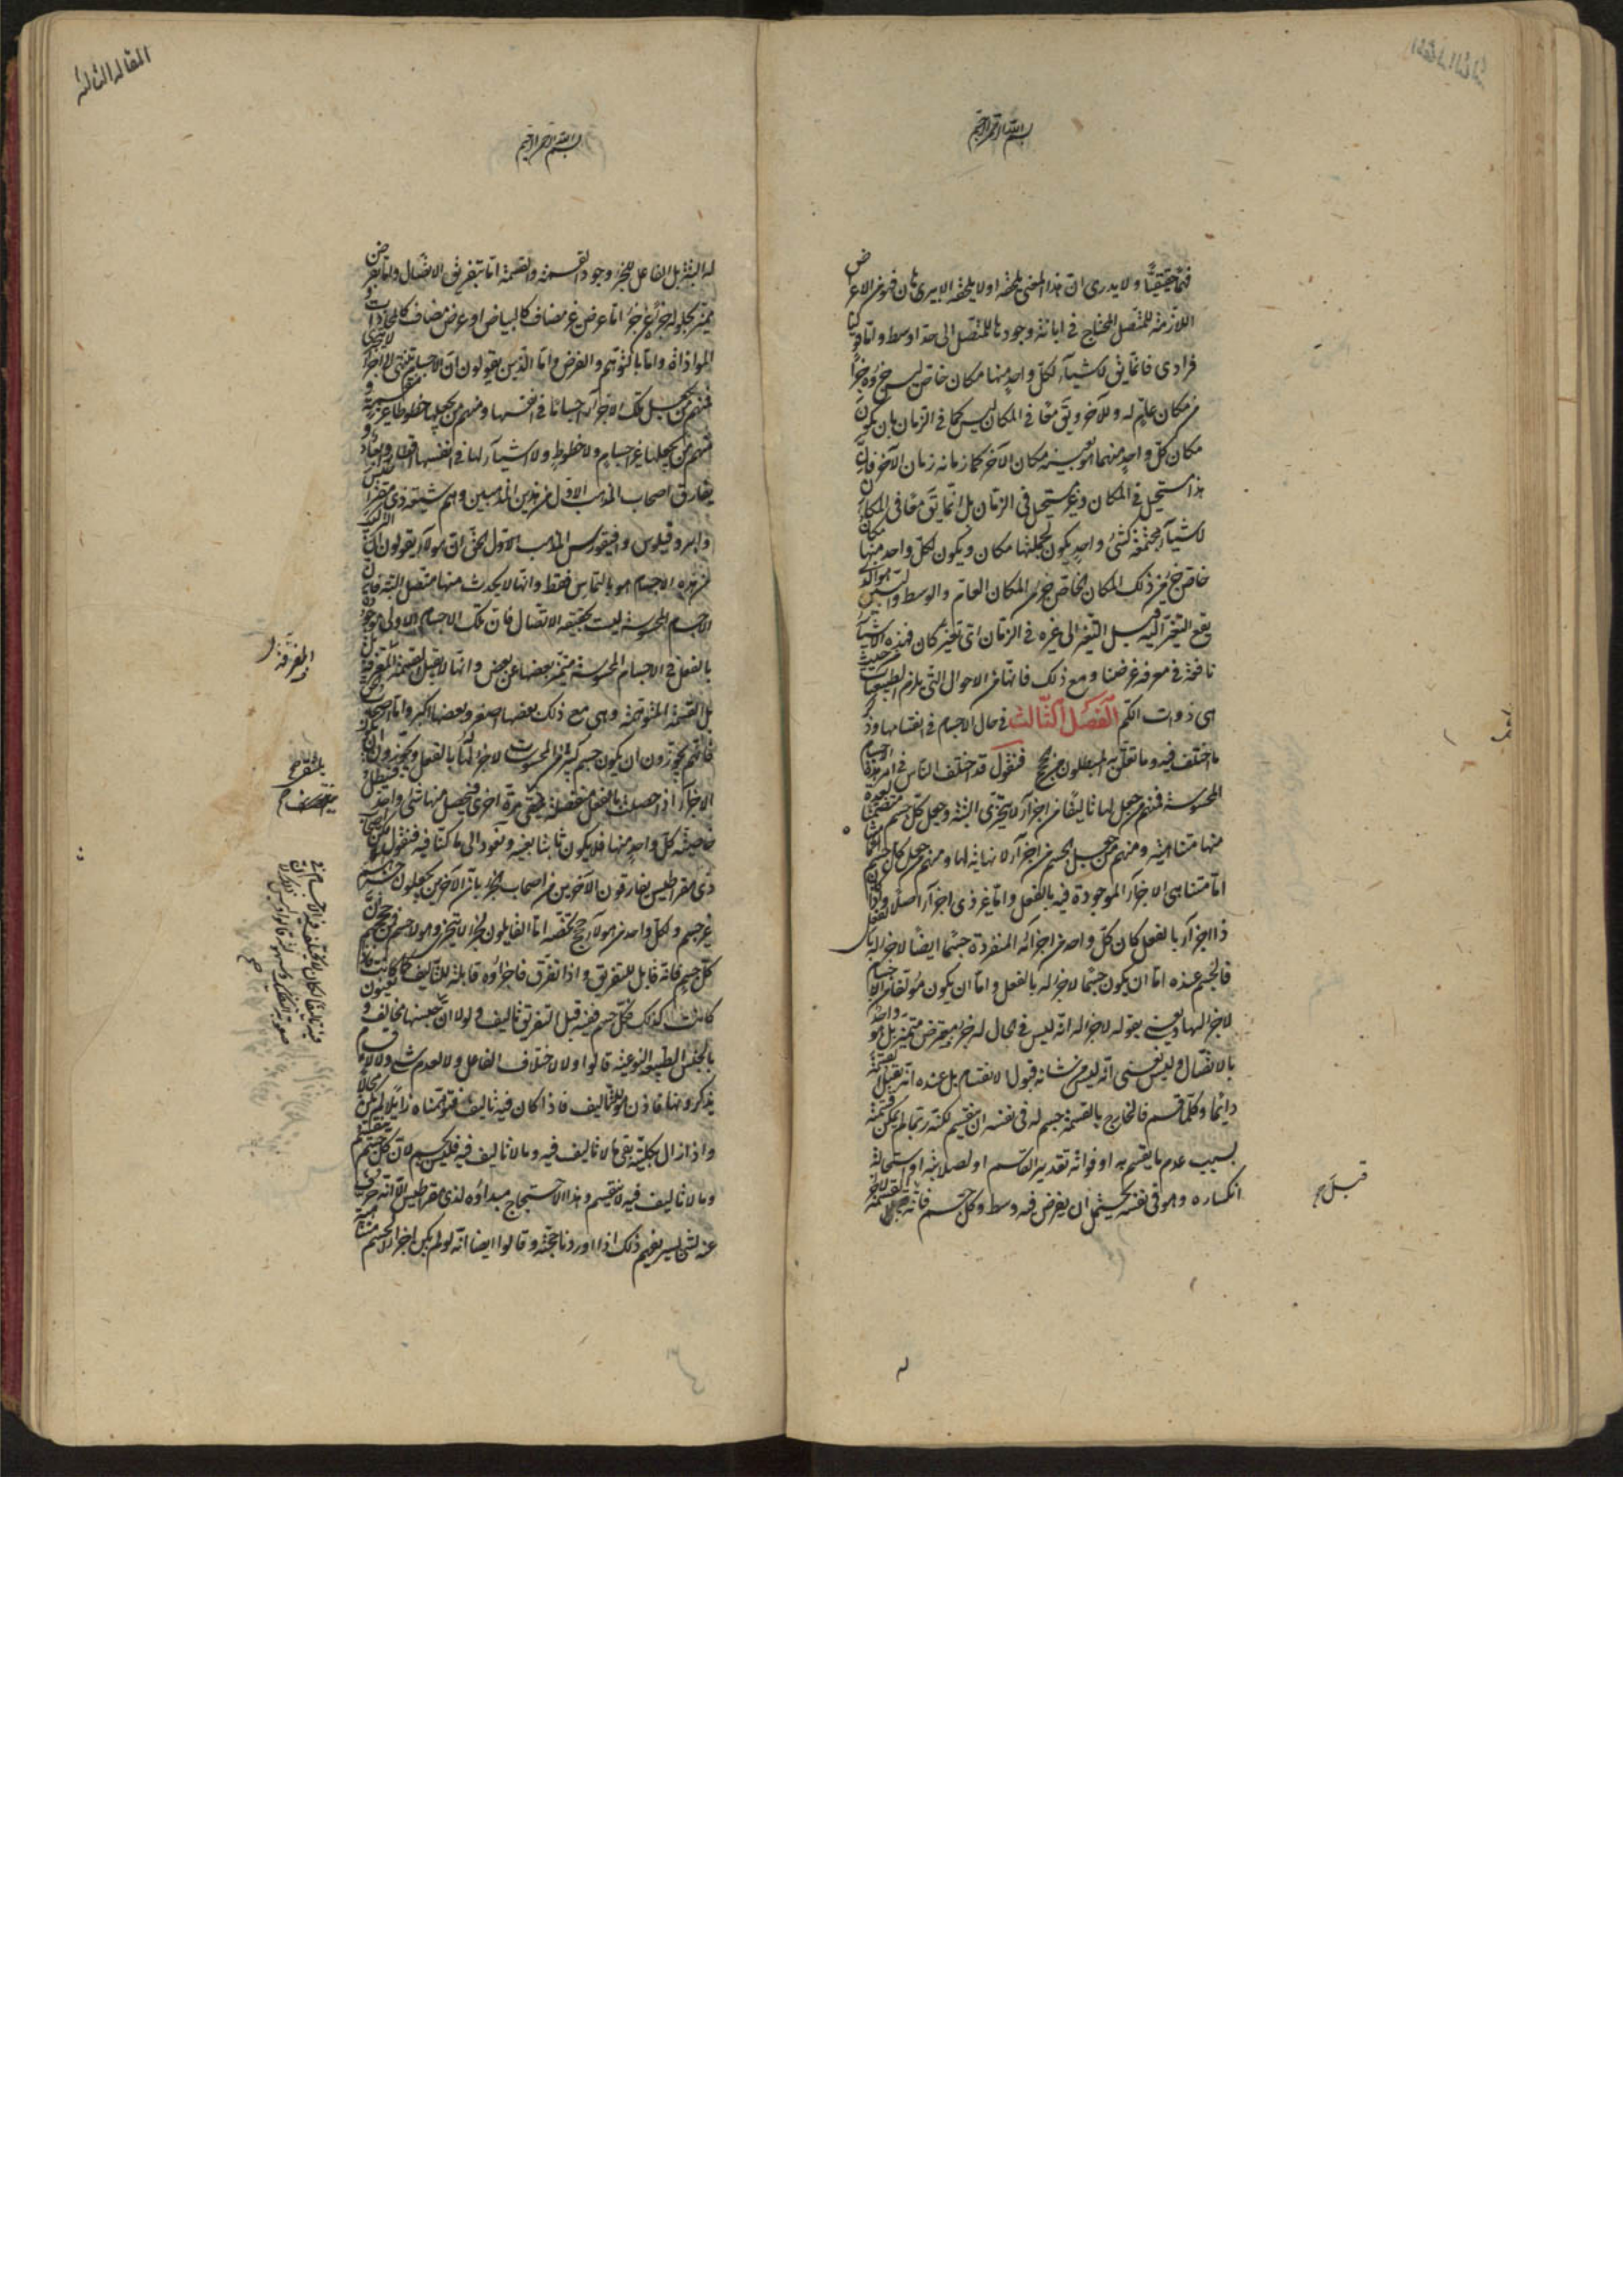 بسم الله الرحمن الرحيم
فهما حقيقيا ولا يدرى ان هذا المعنى يلحقه او لا يلحقه الا ببرهان فهو من الاعراض
اللازمة للمتصل المحتاج في ابانة وجودها للمتصل الى حد اوسط واما قولنا
فرادى فانما يق لاشيآء لكل واحد منها مكان خاص ليس جزؤه جزأ
من مكان عام له وللآخر ويق معا في المكان ليس كما في الزمان بان يكون
مكان كل واحد منهما هو بعينه مكان الآخر كما زمانه زمان الآخر فان
هذا مستحيل في المكان وغير مستحيل في الزمان بل انما يق معا في المكان
لاشيآء مجتمعة كشئ واحد يكون لجملتها مكان ويكون لكل واحد منها مكان
خاص جزء من ذلك المكان الخاص جزء من المكان العام والوسط والبين هو الذى
يقع التغير اليه قبل التغير الى غيره في الزمان اى تغير كان فهذه الاشيآء
نافعة في معرفة غرضنا ومع ذلك فانها من الاحوال التى يلزم الطبيعيات من حيث
هى ذوات الكم الفصل الثالث في حال الاجسام في انقسامها وذكر
ما اختلف فيه وما تعلق به المبطلون من حجج فنقول قد اختلف الناس في امر هذه الاجسام
المحسوسة فمنهم من جعل لها تأليفا من اجزآء لا يتجزى البتة وجعل كل جسم متضمنا لعدة
منها متناهية ومنهم من جعل الجسم من اجزآء لا نهاية لها ومنهم من جعل كل جسم
اما متناهى الاجزآء الموجودة فيه بالفعل واما غير ذى اجزآء اصلا واذا كان
ذا اجزآء بالفعل كان كل واحد من اجزائه المنفردة جسما ايضا لا جزء له بالفعل
فالجسم عنده اما ان يكون جسما لا جزء له بالفعل واما ان يكون مؤلفا من اجسام
لا جزء لها ويعنى بقوله لا جزء له انه ليس في الحال له جزء مفترض متميز بل هو واحد
بالاتصال وليس يعنى انه ليس من شانه قبول الانقسام بل عنده انه يقبل القسمة
دائما وكلما قسم فالخارج بالقسمة جسم له في نفسه ان ينقسم لكنه ربما لم يمكن قسمته
بسبب عدم ما يقسم به او فواته تقدير القاسم او لصلابته او استحالة
انكساره وهو في نفسه يحتمل ان يفرض فيه وسط وكل جسم فانه قبل القسمة لا جزء
قبل
المقالة الثالثة
بسم الله الرحمن الرحيم
له البتة بل الفاعل للجزء وجود القسمة والقسمة اما بتفريق الاتصال واما بعرض
يميز بحلوله جزءا عن جزء اما عرض غير مضاف كالبياض او عرض مضاف كالمحاذات و
الموازاة واما بالتوهم والفرض واما الذين يقولون ان الاجسام تنتهى الى اجزآء لا يتجزى
فمنهم من يجعل تلك الاجزآء اجساما في انفسها ومنهم من يجعلها خطوطا غير منقسمة و
منهم من يجعلها غير اجسام ولا خطوط ولا اشيآء لها في انفسها اقطار وابعاد و
يفارق اصحاب المذهب الاول من هذين المذهبين وهم شيعة ذى مقراطيس
وابيروقيلوس وافيقورس المذهب الاول الحق ان هولآء يقولون ان التركيب
من هذه الاجسام هو بالتماس فقط وانها لا يحدث منها متصل البتة فان
الاجسام المحسوسة ليست بحقيقة الاتصال فان تلك الاجسام الاولى موجودة
بالفعل في الاجسام المحسوسة متميز بعضها عن بعض وانها لا يقبل القسمة المفرقة
بل القسمة المتوهمة وهى مع ذلك بعضها اصغر وبعضها اكبر واما اصحاب الحق
فانهم يجوزون ان يكون جسم كبير من المحسوسات لا جزء له بالفعل ويجوزون ان
الاجزآء اذا حصلت بالفعل منفصلة يلتقى مرة اخرى فيحصل منها شئ واحد فيبطل
خاصية كل واحد منها فلا يكون ثابتا بعينه ونعود الى ما كنا فيه فنقول
ذى مقراطيس يفارقون الآخرين من اصحاب الجزء بان الآخرين يجعلون جزءهم
غير جسم ولكل واحد من هولآء حجج تخصه اما القايلون بجزء لا يتجزى وهو لا جسم فمن حججهم ان
كل جسم فانه قابل للتفريق واذا تفرق فاجزاؤه قابلة للتاليف كما كانت فاذا
كانت كذلك فكل جسم ففيه قبل التفريق تاليف ولولا ان
بالجنس الطبيعة النوعية قالوا ولا لاختلاف الفاعل ولا لعدم شئ ولا لاقسام
يذكرونها فاذن هو للتاليف فاذا كان فيه تاليف فتوهمناه زايلا لم يكن محالا
واذا زال بكليته بقى ما لا تاليف فيه وما لا تاليف فيه فليس بجسم لان كل جسم منقسم
وما لا تاليف فيه لا ينقسم وهذا الاحتجاج مبداؤه لذى مقراطيس الا انه حرف
عنه لشئ يسير نفهم ذلك اذا اوردنا حجته وقالوا ايضا انه لو لم يكن اجزآء الجسم متناهية
المفرقة